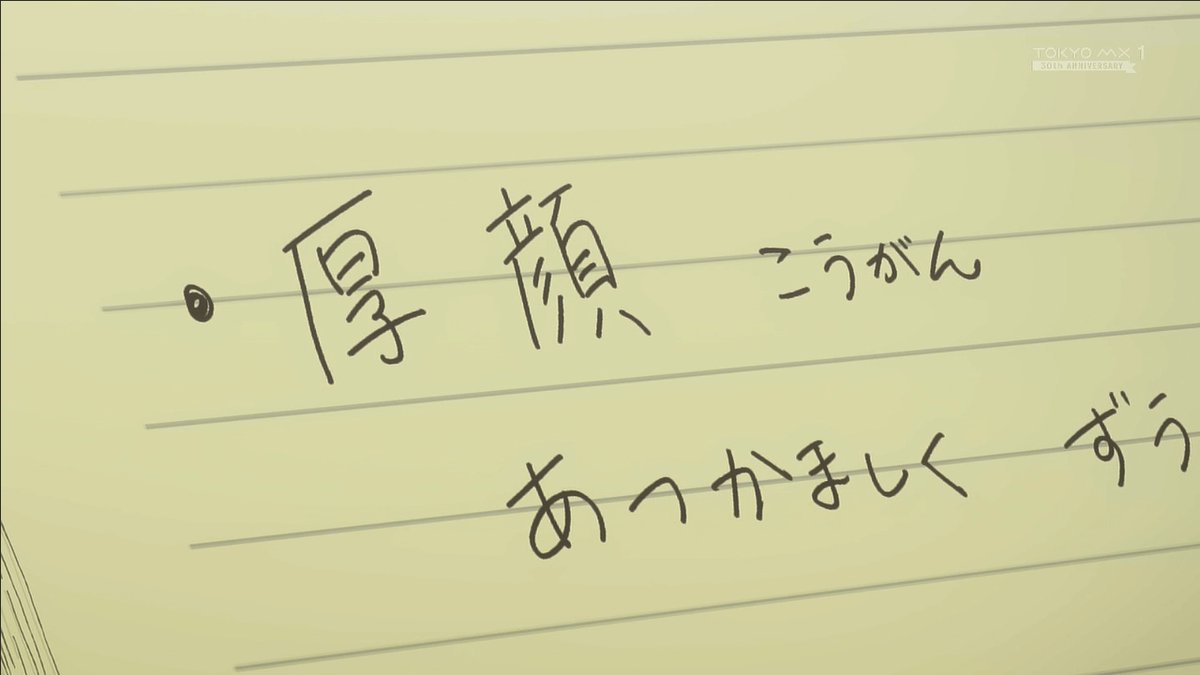 TOKYO MX 1
30th ANNIVERSARY
・厚顔 こうがん
あつかましく ずう